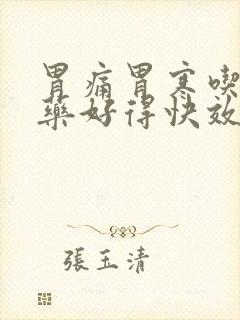 胃痛胃寒喫
藥好得快效
張玉清